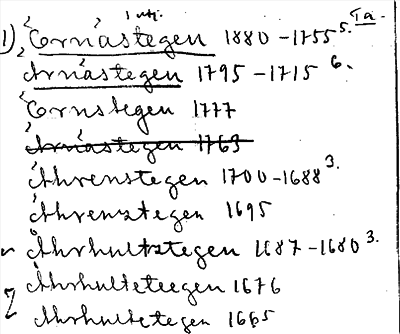 1) Ernåstegen 1880 - 1755 5.
Arnåstegen 1795 - 1715 6.
Ernstegen 1777
Arnåstegen 1769
Åhrenstegen 1700 - 1688 3.
Åhrenztegen 1695
Åhrhultztegen 1687 - 1680 3.
Åhrhulteteegen 1676
Åhrhultetegen 1665